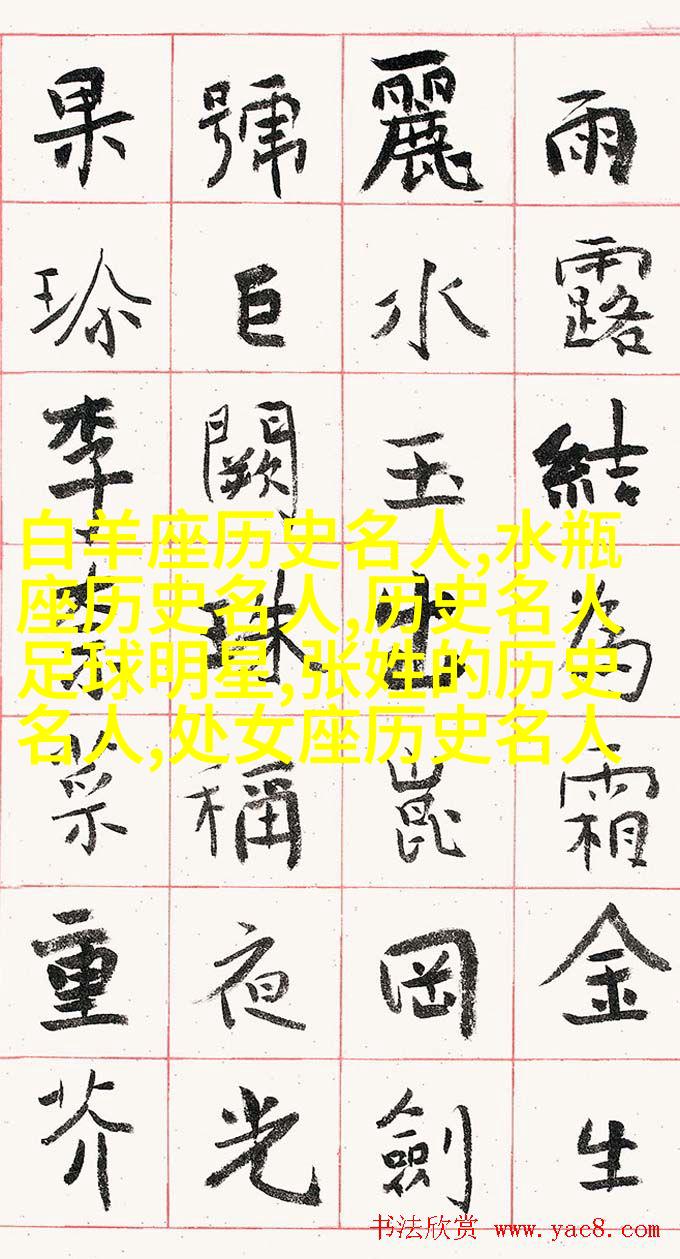 雨露結為霜金生
麗水玉出崑岡劍
號巨闕珠稱夜光
果珎李柰菜重芥
白羊座历史名人,水瓶
座历史名人,历史名人
足球明星,张姓的历史
名人,处女座历史名人
书法欣赏 www.yac8.com